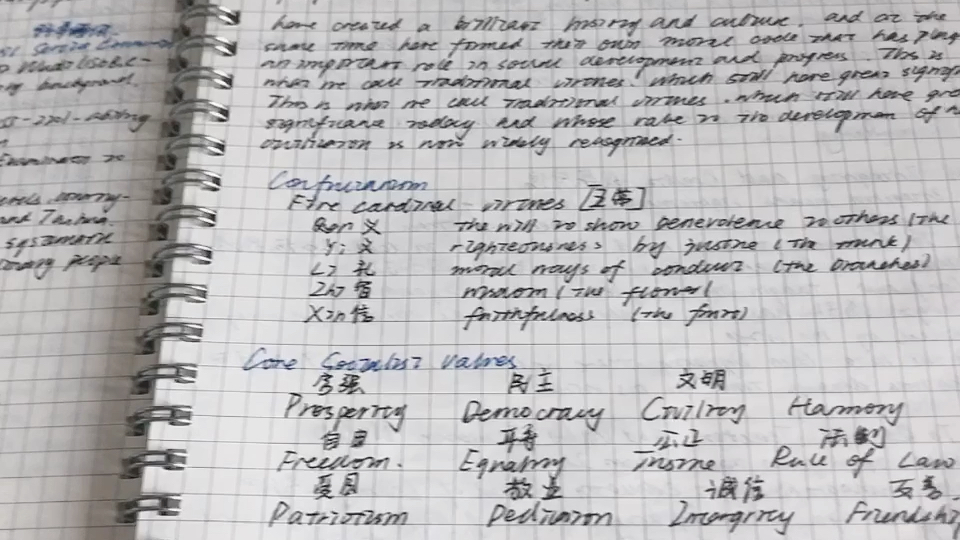 have created a brilliant history and culture. and at the
same time have formed their own moral code that has play
an important role in social development and progress. This is
what we call traditional virtues. which still have great signifi
This is what we call traditional virtues. which still have gre
significance today and whose value to the development of
civilization is now widely recognized.
Confucianism
Five cardinal virtues [五常]
Ren 义 the will to show benevolence to others (the
Yi 义 righteousness by justice (the trunk)
Li 礼 moral ways of conduct (the branches)
Zhi 智 wisdom (the flower)
Xin 信 faithfulness (the fruit)
Core Socialist Values
富强 民主 文明
Prosperity Democracy Civility Harmony
自由 平等 公正 法制
Freedom. Equality Justice Rule of Law
爱国 敬业 诚信 友善
Patriotism Dedication Integrity Friendshi